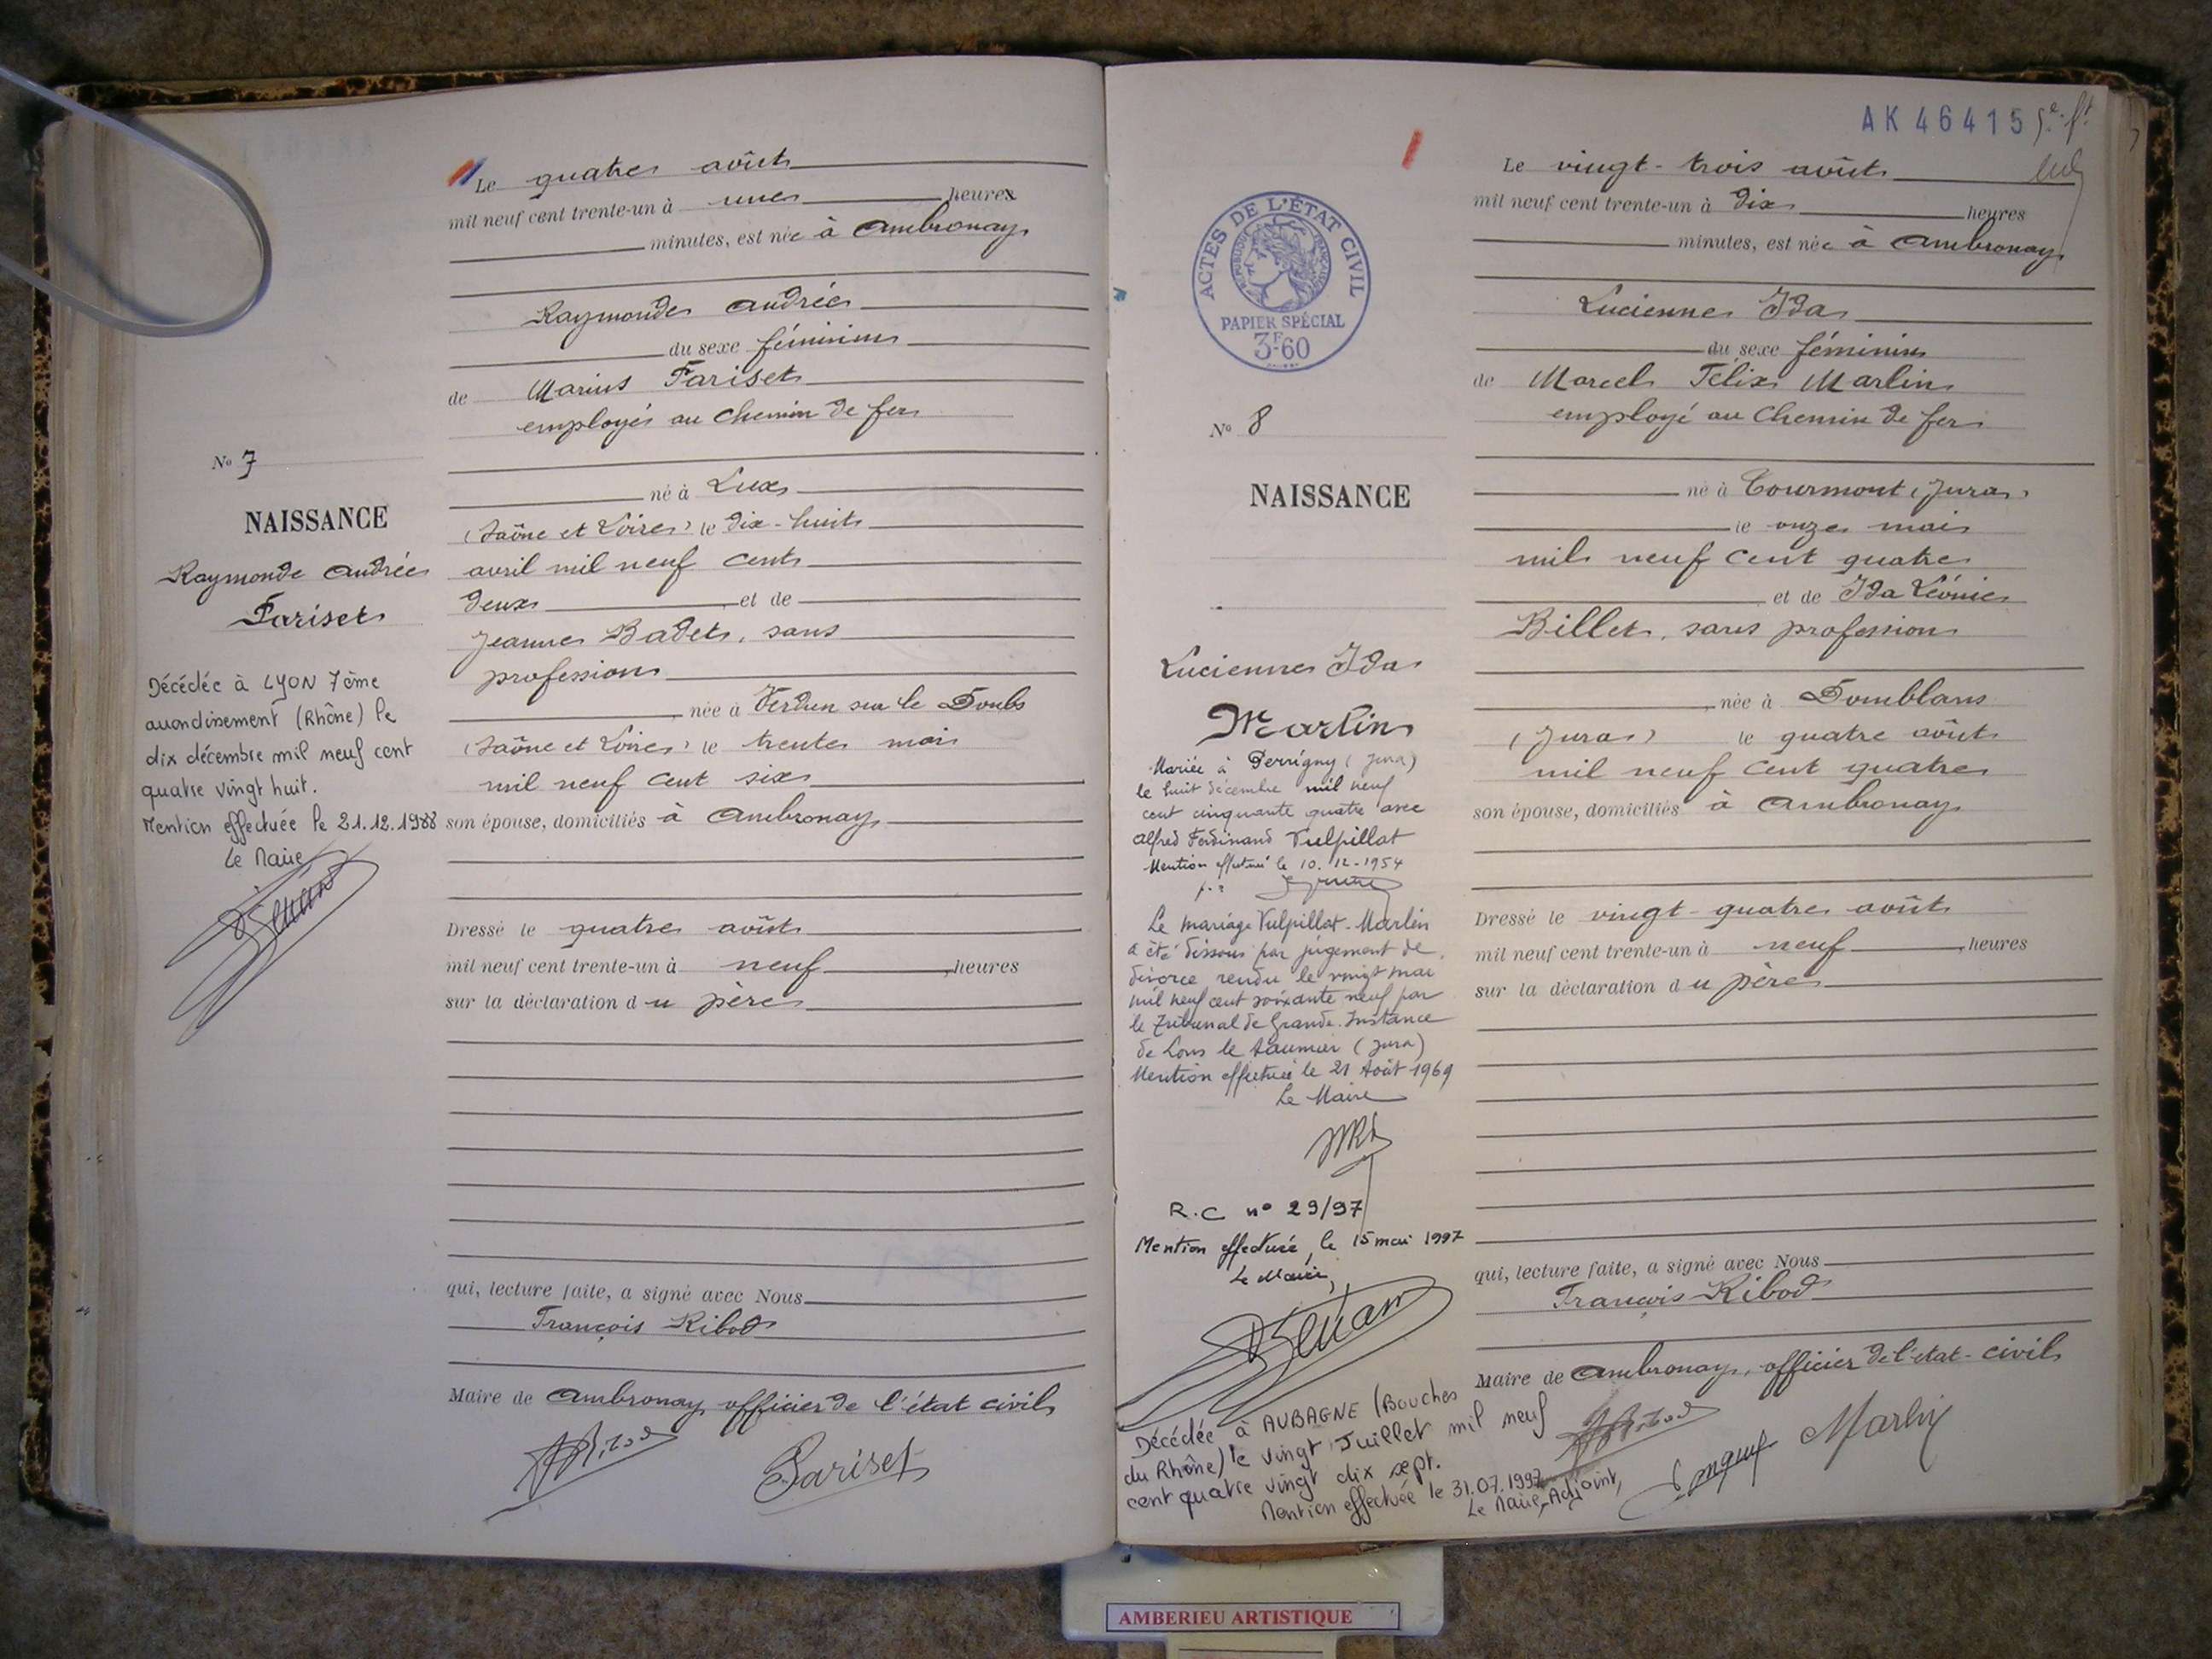 Le quatre août
mil neuf cent trente-un à une heures
minutes, est née à Ambronay
Raymonde Andrée
du sexe féminin
de Marius Pariset
employé au Chemin de fer
né à Lux
(Saône et Loire) le dix-huit
avril mil neuf cent
deux et de
Jeanne Badet, sans
profession
née à Verdun sur le Doubs
(Saône et Loire) le trente mai
mil neuf cent six
son épouse, domiciliés à Ambronay
Dressé le quatre août
mil neuf cent trente-un à neuf heures
sur la déclaration du père
qui, lecture faite, a signé avec Nous
François Ribod
Maire de Ambronay officier de l'état civil
Ribod
Pariset
No 7
NAISSANCE
Raymonde Andrée
Pariset
Décédée à LYON 7ème
arrondissement (Rhône) le
dix décembre mil neuf cent
quatre vingt huit.
Mention effectuée le 21.12.1988
Le Maire
AK 46415
ACTES DE L'ÉTAT CIVIL
RÉPUBLIQUE FRANÇAISE
PAPIER SPÉCIAL
3F-60
No 8
NAISSANCE
Lucienne Ida
Marlin
Mariée à Perrigny (Jura)
le huit décembre mil neuf
cent cinquante quatre avec
Alfred Ferdinand Vulpillat
Mention effectuée le 10.12-1954
Le mariage Vulpillat-Marlin
a été dissous par jugement de
divorce rendu le vingt mai
mil neuf cent soixante neuf par
le Tribunal de Grande Instance
de Lons le Saunier (Jura)
Mention effectuée le 21 Août 1969
Le Maire
R.C n° 29/97
Mention effectuée, le 15 mai 1997
Le Maire,
Décédée à AUBAGNE (Bouches
du Rhône) le vingt Juillet mil neuf
cent quatre vingt dix sept.
Mention effectuée le 31.07.1997
Le Maire Adjoint,
Le vingt-trois août
mil neuf cent trente-un à dix heures
minutes, est née à Ambronay
Lucienne Ida
du sexe féminin
de Marcel Félix Marlin
employé au Chemin de fer
né à Tourmont (Jura)
le onze mai
mil neuf cent quatre
et de Ida Léonie
Billet, sans profession
née à Domblans
(Jura) le quatre août
mil neuf cent quatre
son épouse, domiciliés à Ambronay
Dressé le vingt-quatre août
mil neuf cent trente-un à neuf heures
sur la déclaration du père
qui, lecture faite, a signé avec Nous
François Ribod
Maire de Ambronay, officier de l'état-civil
Ribod
Marlin
AMBERIEU ARTISTIQUE